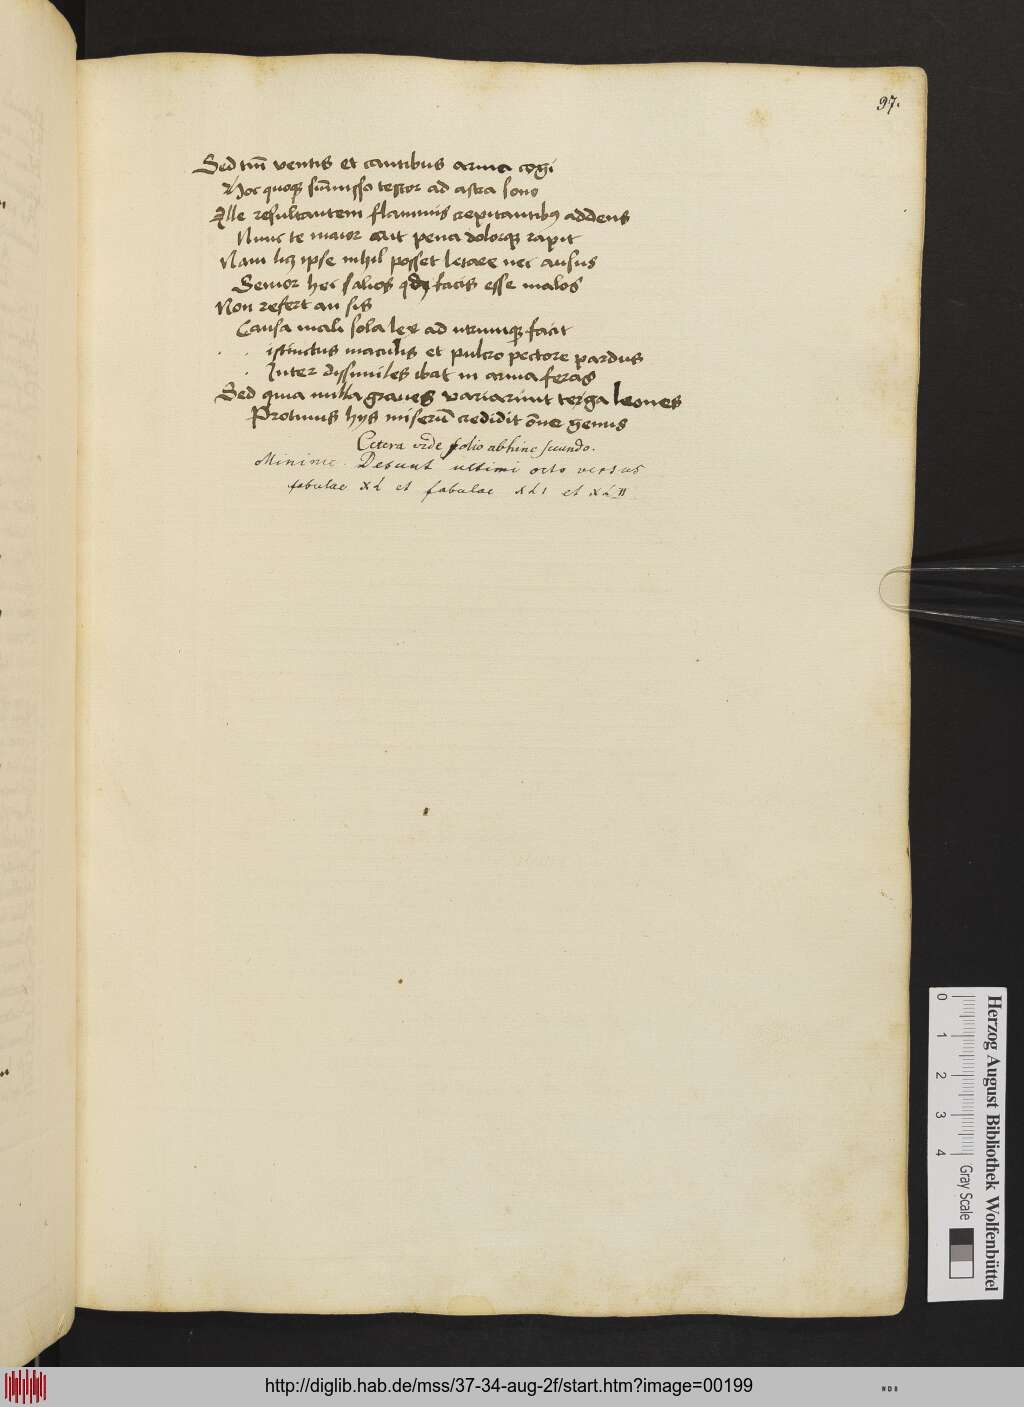 97.
Sed tm̄ ventis et cantibus arma cogi
Hoc quoqꝫ sūmisso testor ad astra sono
Ille resultantem flammis crepitantibꝫ addens
Nunc te maior ait pena dolorqꝫ rapit
Nam licꝫ ipse nihil posset letare nec ausus
Sevior hec salios qdꝫ facis esse malos
Non refert an sis
Causa mali sola les ad utrumqꝫ facit
istinctus maculis et pulcro pectore pardus
Inter dissimiles ibat in arma feras
Sed quia nulla graves variarunt terga leones
Protinus hys miserū credidit ōne genus
Cetera vide folio abhinc secundo.
Minime. Desunt ultimi octo versus
fabulae XL et fabulae XLI et XLII
Herzog August Bibliothek Wolfenbüttel
0 1 2 3 4 Gray Scale
http://diglib.hab.de/mss/37-34-aug-2f/start.htm?image=00199